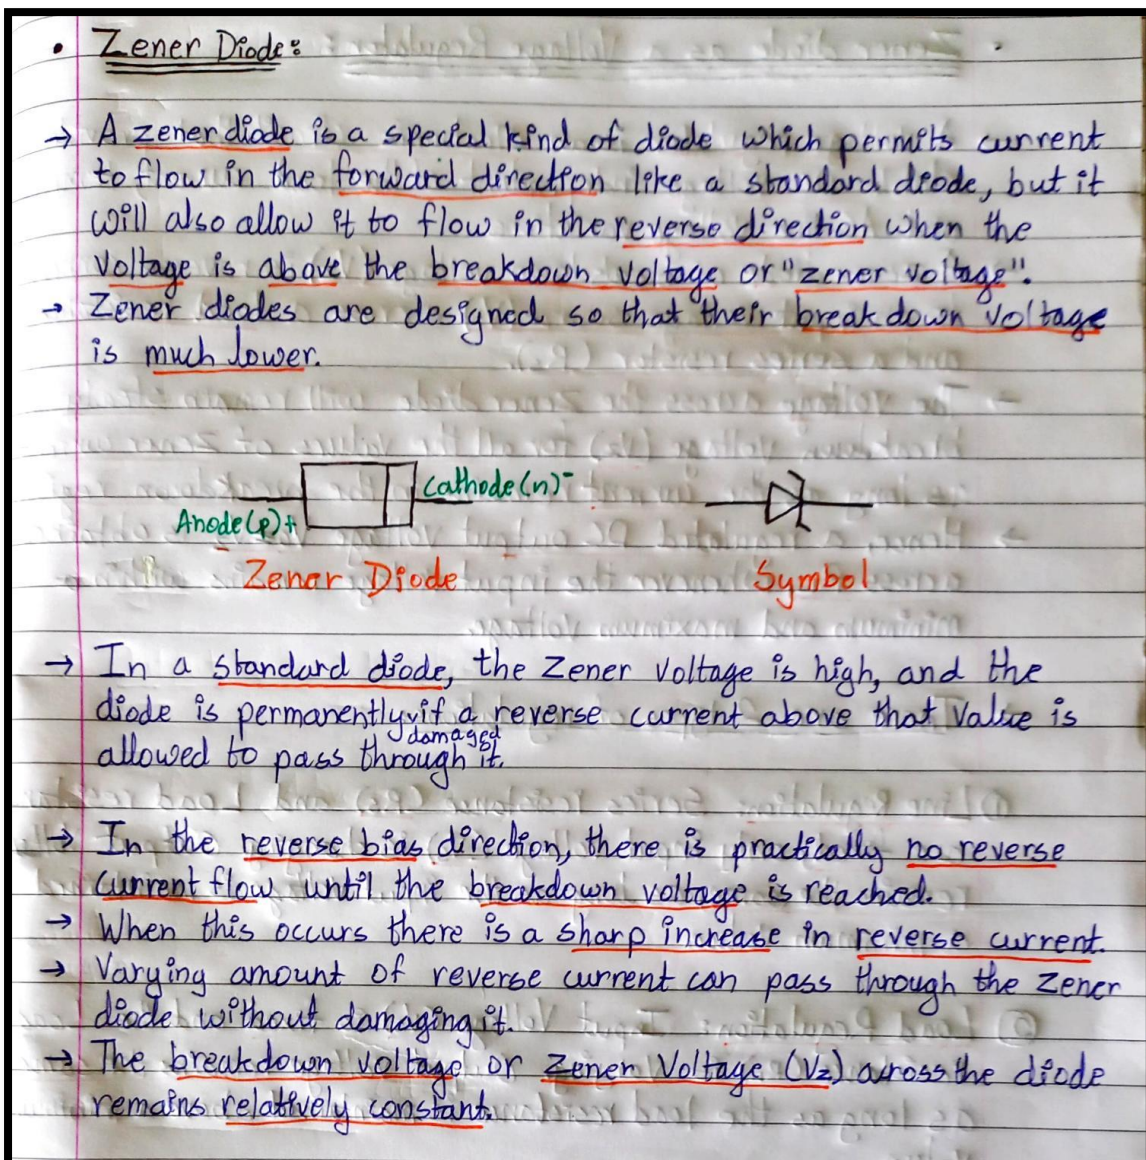 • Zener Diode:
→ A zener diode is a special kind of diode which permits current
to flow in the forward direction like a standard diode, but it
will also allow it to flow in the reverse direction when the
voltage is above the breakdown voltage or "zener voltage".
→ Zener diodes are designed so that their breakdown voltage
is much lower.
Cathode(n)-
Anode(p)+
Zener Diode
Symbol
→ In a standard diode, the Zener voltage is high, and the
diode is permanently if a reverse current above that value is
damaged
allowed to pass through it.
→ In the reverse bias direction, there is practically no reverse
current flow until the breakdown voltage is reached.
→ When this occurs there is a sharp increase in reverse current.
→ Varying amount of reverse current can pass through the Zener
diode without damaging it.
→ The breakdown voltage or Zener Voltage (Vz) across the diode
remains relatively constant.